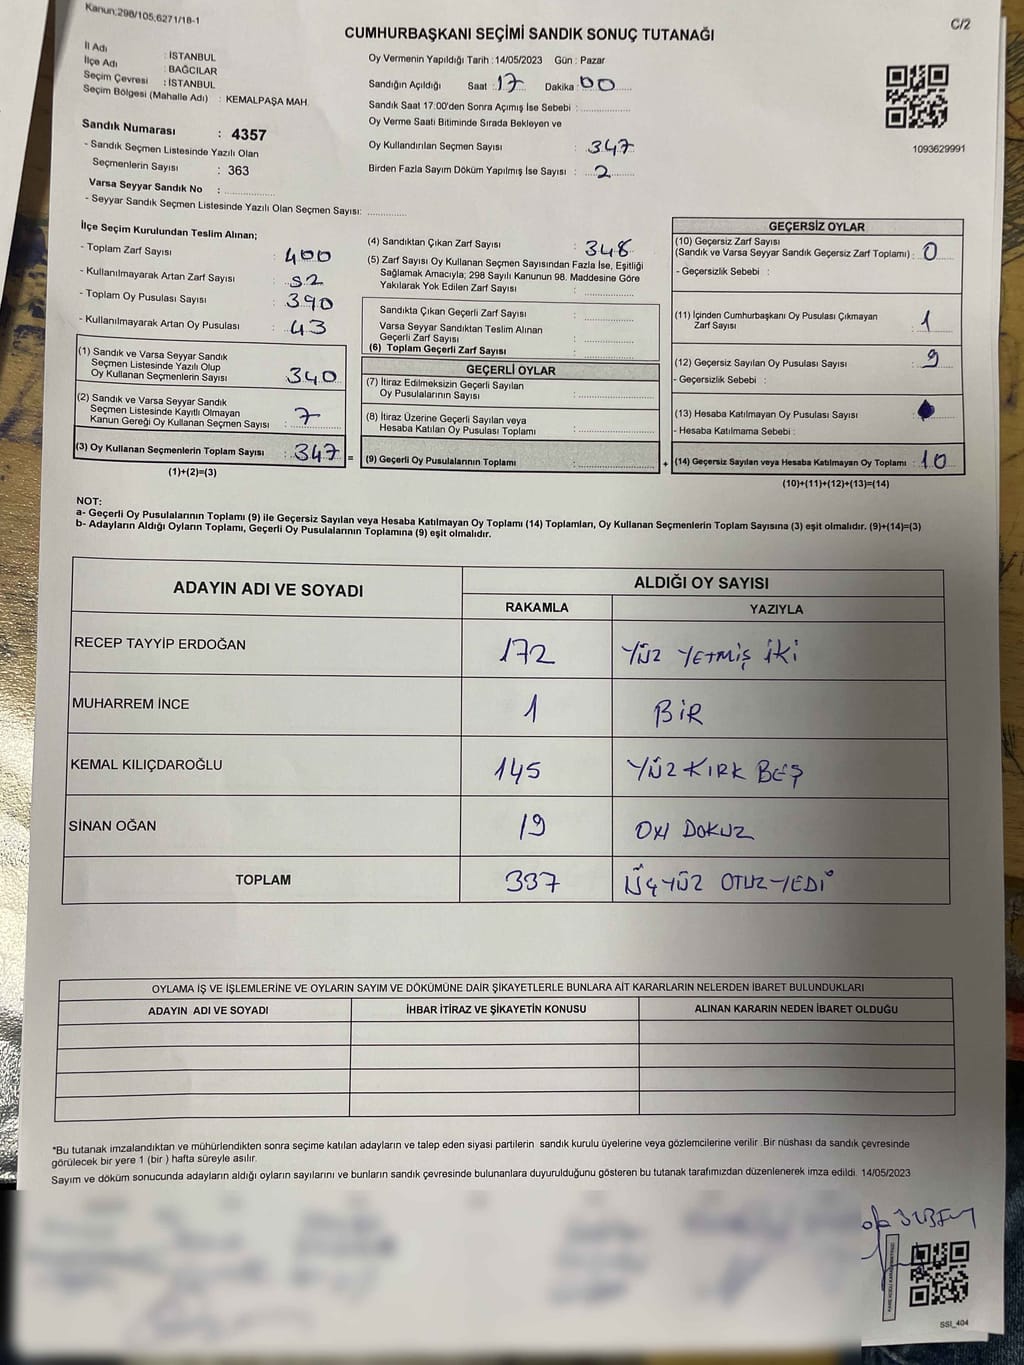 Kanun;298/105,6271/18-1
C/2
CUMHURBAŞKANI SEÇİMİ SANDIK SONUÇ TUTANAĞI
İl Adı : İSTANBUL
İlçe Adı : BAĞCILAR
Seçim Çevresi : İSTANBUL
Seçim Bölgesi (Mahalle Adı) : KEMALPAŞA MAH.
Sandık Numarası : 4357
- Sandık Seçmen Listesinde Yazılı Olan
Seçmenlerin Sayısı : 363
Varsa Seyyar Sandık No :
- Seyyar Sandık Seçmen Listesinde Yazılı Olan Seçmen Sayısı:
Oy Vermenin Yapıldığı Tarih : 14/05/2023 Gün : Pazar
Sandığın Açıldığı Saat : 17 Dakika : 00
Sandık Saat 17:00'den Sonra Açımış İse Sebebi :
Oy Verme Saati Bitiminde Sırada Bekleyen ve
Oy Kullandırılan Seçmen Sayısı : 347
Birden Fazla Sayım Döküm Yapılmış İse Sayısı : 2
1093629991
İlçe Seçim Kurulundan Teslim Alınan;
- Toplam Zarf Sayısı : 400
- Kullanılmayarak Artan Zarf Sayısı : 52
- Toplam Oy Pusulası Sayısı : 390
- Kullanılmayarak Artan Oy Pusulası : 43
(1) Sandık ve Varsa Seyyar Sandık
Seçmen Listesinde Yazılı Olup
Oy Kullanan Seçmenlerin Sayısı : 340
(2) Sandık ve Varsa Seyyar Sandık
Seçmen Listesinde Kayıtlı Olmayan
Kanun Gereği Oy Kullanan Seçmen Sayısı : 7
(3) Oy Kullanan Seçmenlerin Toplam Sayısı : 347 =
(1)+(2)=(3)
(4) Sandıktan Çıkan Zarf Sayısı : 348
(5) Zarf Sayısı Oy Kullanan Seçmen Sayısından Fazla İse, Eşitliği
Sağlamak Amacıyla; 298 Sayılı Kanunun 98. Maddesine Göre
Yakılarak Yok Edilen Zarf Sayısı :
Sandıkta Çıkan Geçerli Zarf Sayısı :
Varsa Seyyar Sandıktan Teslim Alınan
Geçerli Zarf Sayısı :
(6) Toplam Geçerli Zarf Sayısı :
GEÇERLİ OYLAR
(7) İtiraz Edilmeksizin Geçerli Sayılan
Oy Pusulalarının Sayısı :
(8) İtiraz Üzerine Geçerli Sayılan veya
Hesaba Katılan Oy Pusulası Toplamı :
(9) Geçerli Oy Pusulalarının Toplamı : +
GEÇERSİZ OYLAR
(10) Geçersiz Zarf Sayısı
(Sandık ve Varsa Seyyar Sandık Geçersiz Zarf Toplamı) : 0
- Geçersizlik Sebebi :
(11) İçinden Cumhurbaşkanı Oy Pusulası Çıkmayan
Zarf Sayısı : 1
(12) Geçersiz Sayılan Oy Pusulası Sayısı : 9
- Geçersizlik Sebebi :
(13) Hesaba Katılmayan Oy Pusulası Sayısı :
- Hesaba Katılmama Sebebi :
(14) Geçersiz Sayılan veya Hesaba Katılmayan Oy Toplamı : 10
(10)+(11)+(12)+(13)=(14)
NOT:
a- Geçerli Oy Pusulalarının Toplamı (9) ile Geçersiz Sayılan veya Hesaba Katılmayan Oy Toplamı (14) Toplamları, Oy Kullanan Seçmenlerin Toplam Sayısına (3) eşit olmalıdır. (9)+(14)=(3)
b- Adayların Aldığı Oyların Toplamı, Geçerli Oy Pusulalarının Toplamına (9) eşit olmalıdır.
ADAYIN ADI VE SOYADI ALDIĞI OY SAYISI
RAKAMLA YAZIYLA
RECEP TAYYİP ERDOĞAN 172 YÜZ YETMİŞ İKİ
MUHARREM İNCE 1 BİR
KEMAL KILIÇDAROĞLU 145 YÜZ KIRK BEŞ
SİNAN OĞAN 19 ON DOKUZ
TOPLAM 337 ÜÇYÜZ OTUZ YEDİ
OYLAMA İŞ VE İŞLEMLERİNE VE OYLARIN SAYIM VE DÖKÜMÜNE DAİR ŞİKAYETLERLE BUNLARA AİT KARARLARIN NELERDEN İBARET BULUNDUKLARI
ADAYIN ADI VE SOYADI İHBAR İTİRAZ VE ŞİKAYETİN KONUSU ALINAN KARARIN NEDEN İBARET OLDUĞU
*Bu tutanak imzalandıktan ve mühürlendikten sonra seçime katılan adayların ve talep eden siyasi partilerin sandık kurulu üyelerine veya gözlemcilerine verilir .Bir nüshası da sandık çevresinde
görülecek bir yere 1 (bir ) hafta süreyle asılır.
Sayım ve döküm sonucunda adayların aldığı oyların sayılarını ve bunların sandık çevresinde bulunanlara duyurulduğunu gösteren bu tutanak tarafımızdan düzenlenerek imza edildi. 14/05/2023
SSI_404